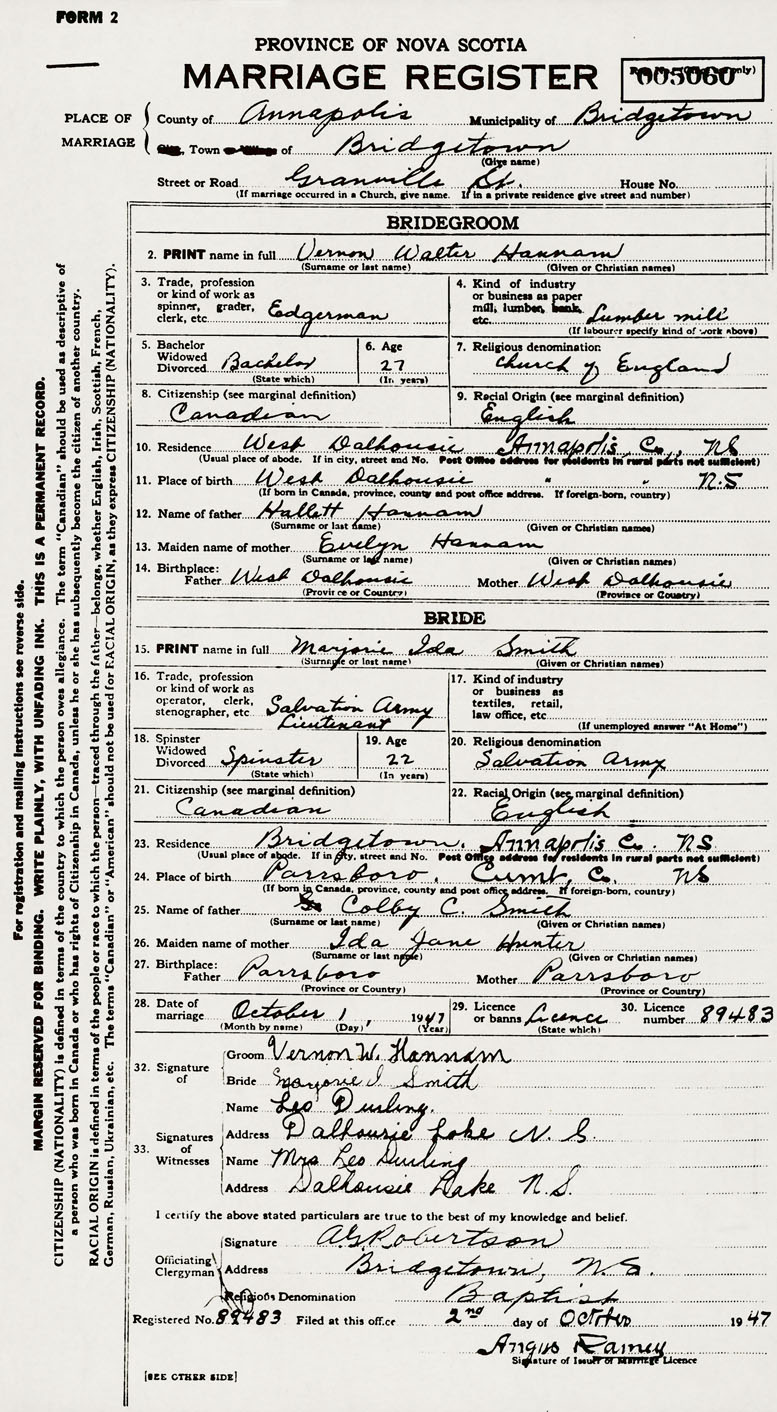 FORM 2
PROVINCE OF NOVA SCOTIA
MARRIAGE REGISTER
005060
PLACE OF MARRIAGE
County of Annapolis Municipality of Bridgetown
City, Town or Village of Bridgetown
(Give name)
Street or Road Granville St. House No.
(If marriage occurred in a Church, give name. If in a private residence give street and number)
BRIDEGROOM
2. PRINT name in full Vernon Walter Hannam
(Surname or last name) (Given or Christian names)
3. Trade, profession or kind of work as spinner, grader, clerk, etc. Edgerman
4. Kind of industry or business as paper mill, lumber, bank, etc. Lumber mill
(If labourer specify kind of work above)
5. Bachelor Widowed Divorced Bachelor
(State which)
6. Age 27
(In years)
7. Religious denomination Church of England
8. Citizenship (see marginal definition) Canadian
9. Racial Origin (see marginal definition) English
10. Residence West Dalhousie Annapolis, Co., NS
(Usual place of abode. If in city, street and No. Post Office address for residents in rural parts not sufficient)
11. Place of birth West Dalhousie " " N.S
(If born in Canada, province, county and post office address. If foreign-born, country)
12. Name of father Hallett Hannam
(Surname or last name) (Given or Christian names)
13. Maiden name of mother Evelyn Hannam
(Surname or last name) (Given or Christian names)
14. Birthplace: Father West Dalhousie Mother West Dalhousie
(Province or Country) (Province or Country)
BRIDE
15. PRINT name in full Marjorie Ida Smith
(Surname or last name) (Given or Christian names)
16. Trade, profession or kind of work as operator, clerk, stenographer, etc Salvation Army Lieutenant
17. Kind of industry or business as textiles, retail, law office, etc
(If unemployed answer "At Home")
18. Spinster Widowed Divorced Spinster
(State which)
19. Age 22
(In years)
20. Religious denomination Salvation Army
21. Citizenship (see marginal definition) Canadian
22. Racial Origin (see marginal definition) English
23. Residence Bridgetown, Annapolis Co. NS
(Usual place of abode. If in city, street and No. Post Office address for residents in rural parts not sufficient)
24. Place of birth Parrsboro, Cumt, Co. NS
(If born in Canada, province, county and post office address. If foreign-born, country)
25. Name of father Colby C. Smith
(Surname or last name) (Given or Christian names)
26. Maiden name of mother Ida Jane Hunter
(Surname or last name) (Given or Christian names)
27. Birthplace: Father Parrsboro Mother Parrsboro
(Province or Country) (Province or Country)
28. Date of marriage October 1, 1947
(Month by name) (Day) (Year)
29. Licence or banns Licence
(State which)
30. Licence number 89483
32. Signature of
Groom Vernon W. Hannam
Bride Marjorie I. Smith
33. Signatures of Witnesses
Name Leo Durling.
Address Dalhousie Lake N. S.
Name Mrs Leo Durling
Address Dalhousie Lake N.S.
I certify the above stated particulars are true to the best of my knowledge and belief.
Officiating Clergyman
Signature A.G. Robertson
Address Bridgetown, N.S.
Religious Denomination Baptist
Registered No. 89483 Filed at this office 2nd day of October 1947
Angus Ramey
Signature of Issuer of Marriage Licence
[SEE OTHER SIDE]
For registration and mailing instructions see reverse side.
MARGIN RESERVED FOR BINDING. WRITE PLAINLY, WITH UNFADING INK. THIS IS A PERMANENT RECORD.
CITIZENSHIP (NATIONALITY) is defined in terms of the country to which the person owes allegiance. The term "Canadian" should be used as descriptive of
a person who was born in Canada or who has rights of Citizenship in Canada, unless he or she has subsequently become the citizen of another country.
RACIAL ORIGIN is defined in terms of the people or race to which the person—traced through the father—belongs, whether English, Irish, Scottish, French,
German, Russian, Ukrainian, etc. The terms "Canadian" or "American" should not be used for RACIAL ORIGIN, as they express CITIZENSHIP (NATIONALITY).